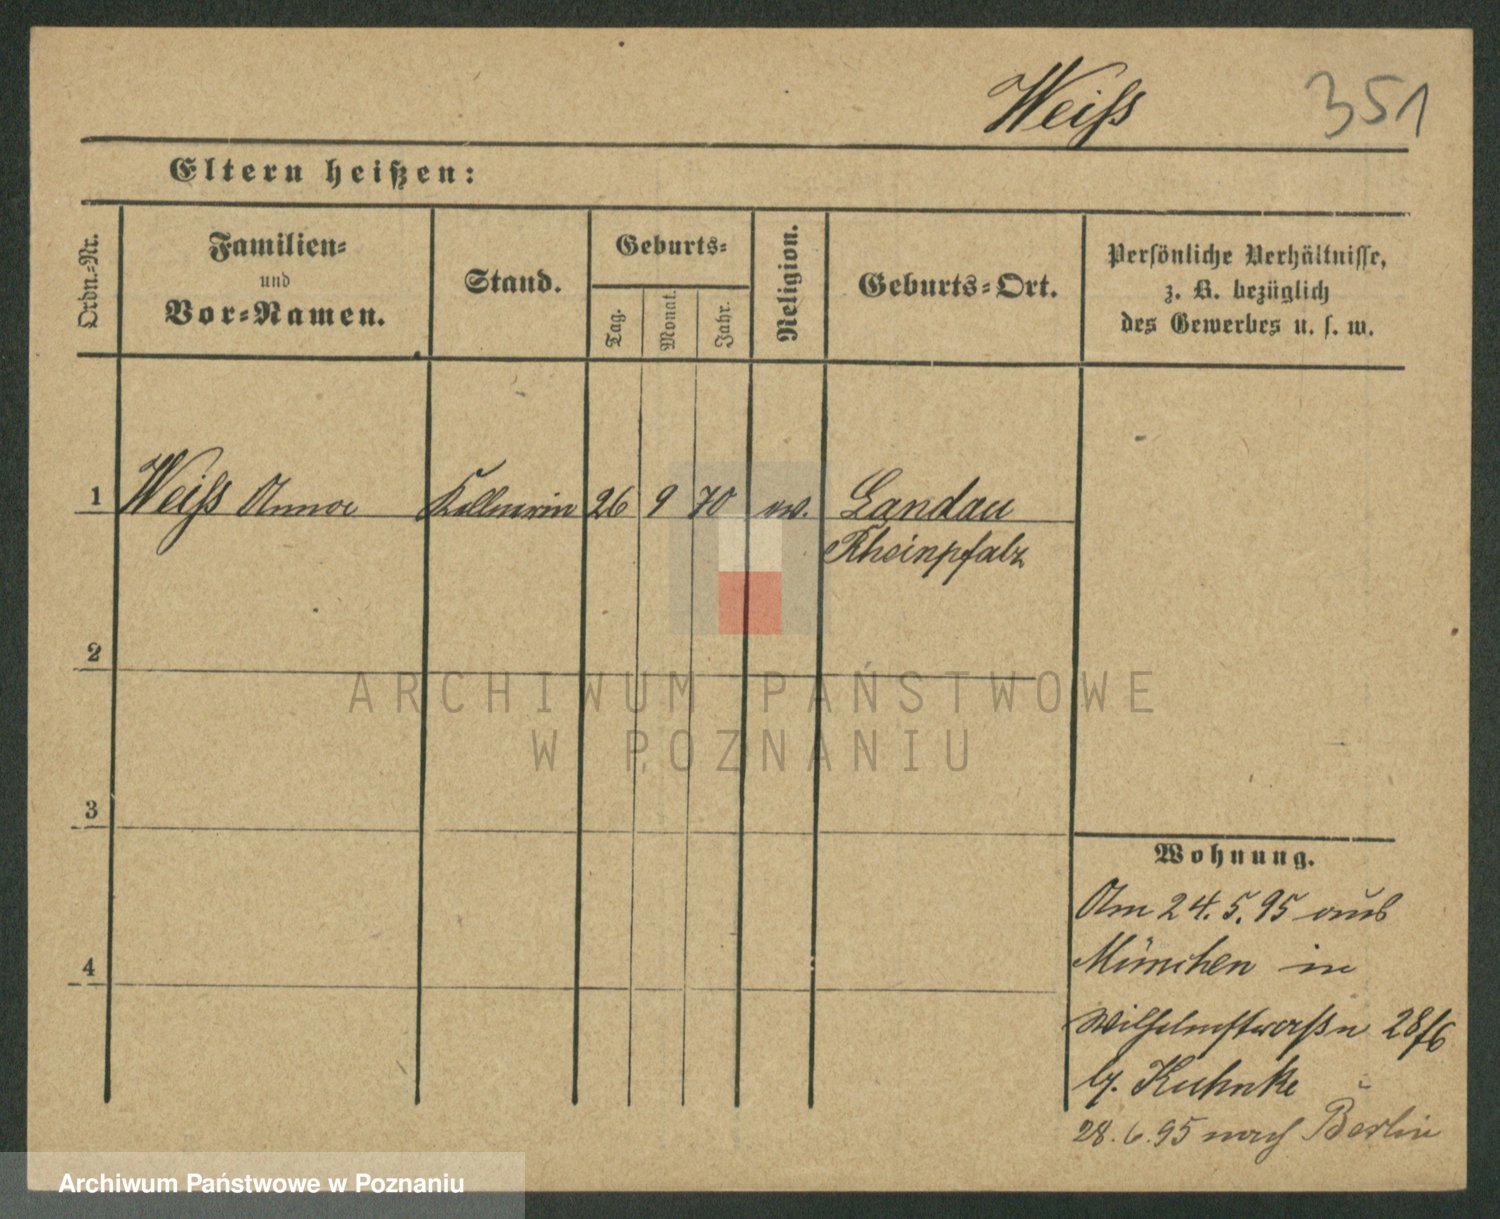 Weiſs 351
Eltern heißen:
Ordn.=Nr.
Familien=
und
Vor=Namen.
Stand.
Geburts=
Tag.
Monat.
Jahr.
Religion.
Geburts=Ort.
Persönliche Verhältnisse,
z. B. bezüglich
des Gewerbes u. s. w.
1 Weiſs Anna Kellnerin 26 9 70 ev. Landau
Rheinpfalz
2
ARCHIWUM PAŃSTWOWE
W POZNANIU
3
4
Wohnung.
Am 24.5.95 aus
München in
Wilhelmstraße 28/6
b. Kuhnke
28.6.95 nach Berlin
Archiwum Państwowe w Poznaniu